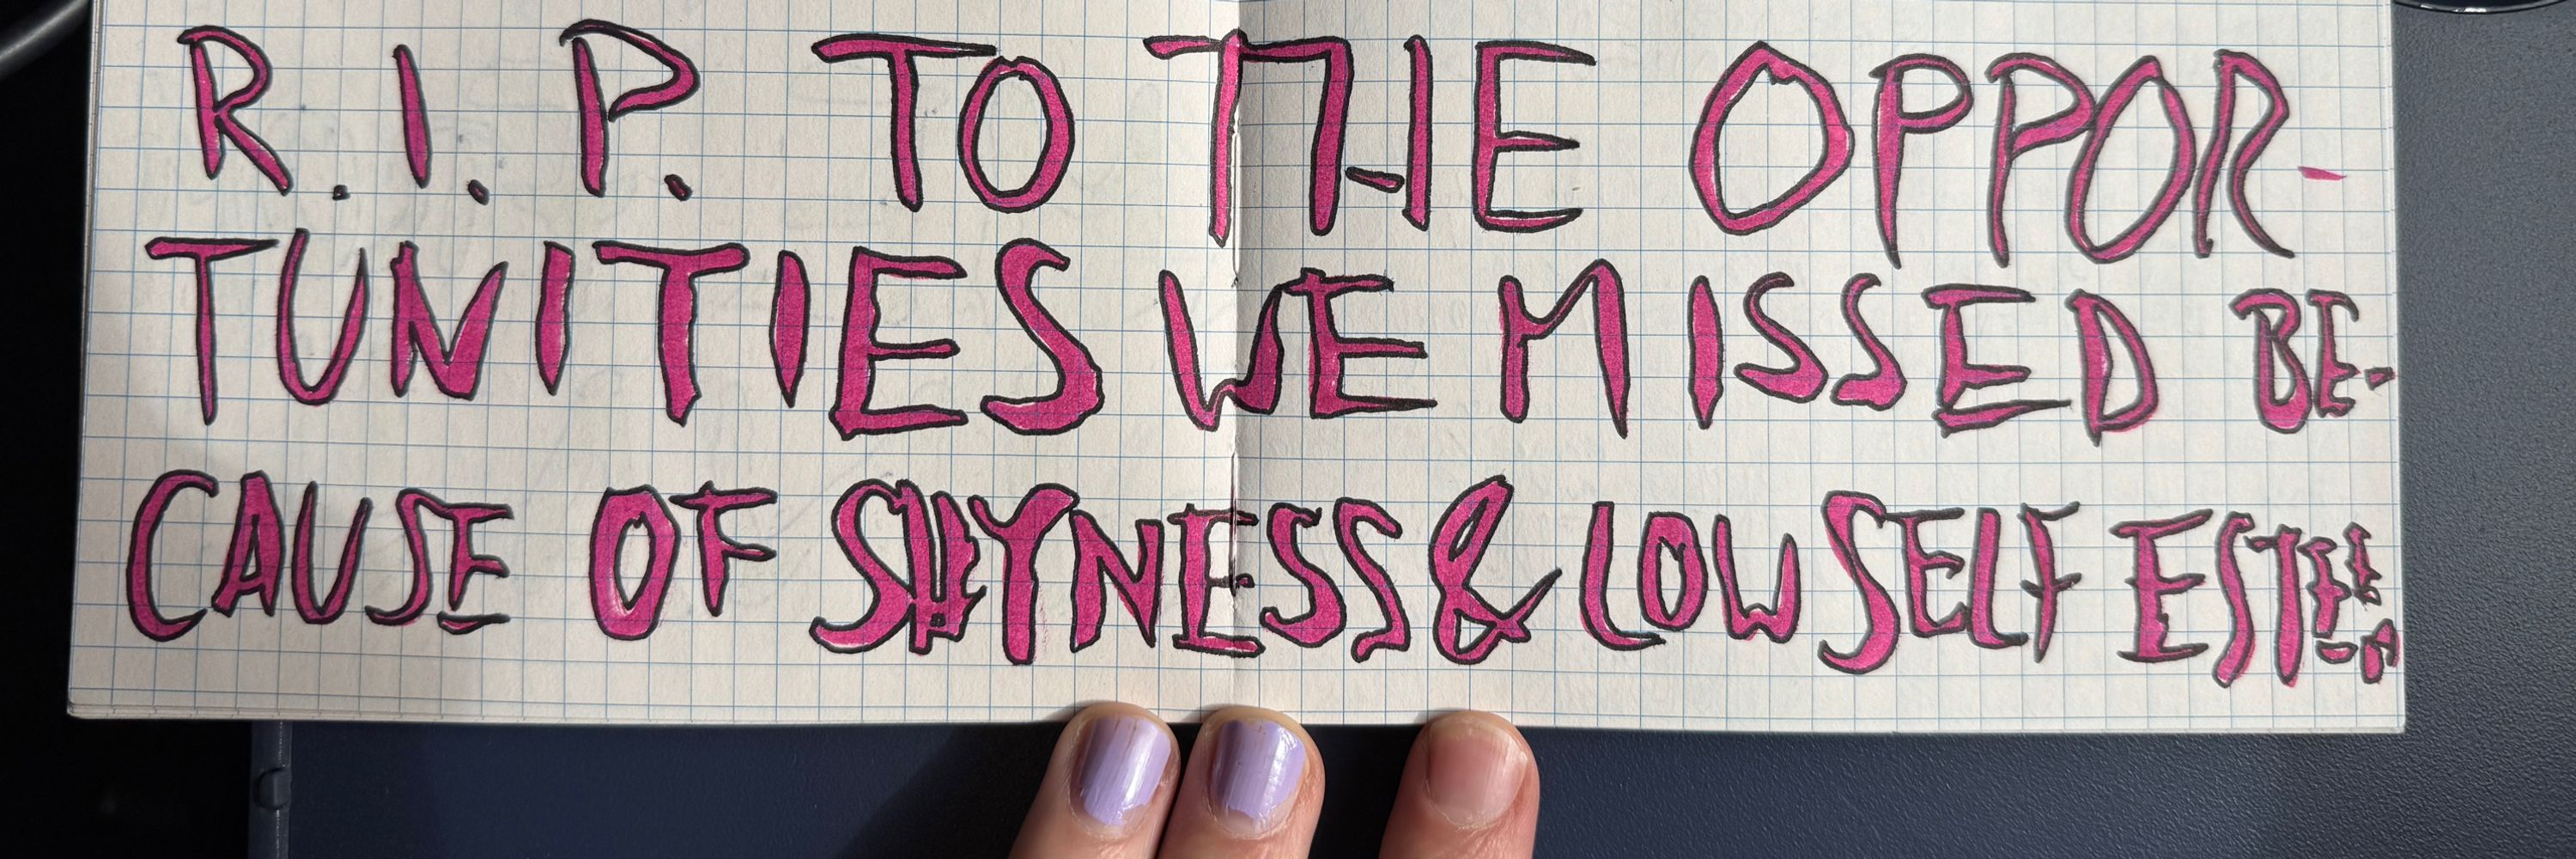 R.I.P. TO THE OPPOR-
TUNITIES WE MISSED BE-
CAUSE OF SHYNESS & LOW SELF ESTEEM